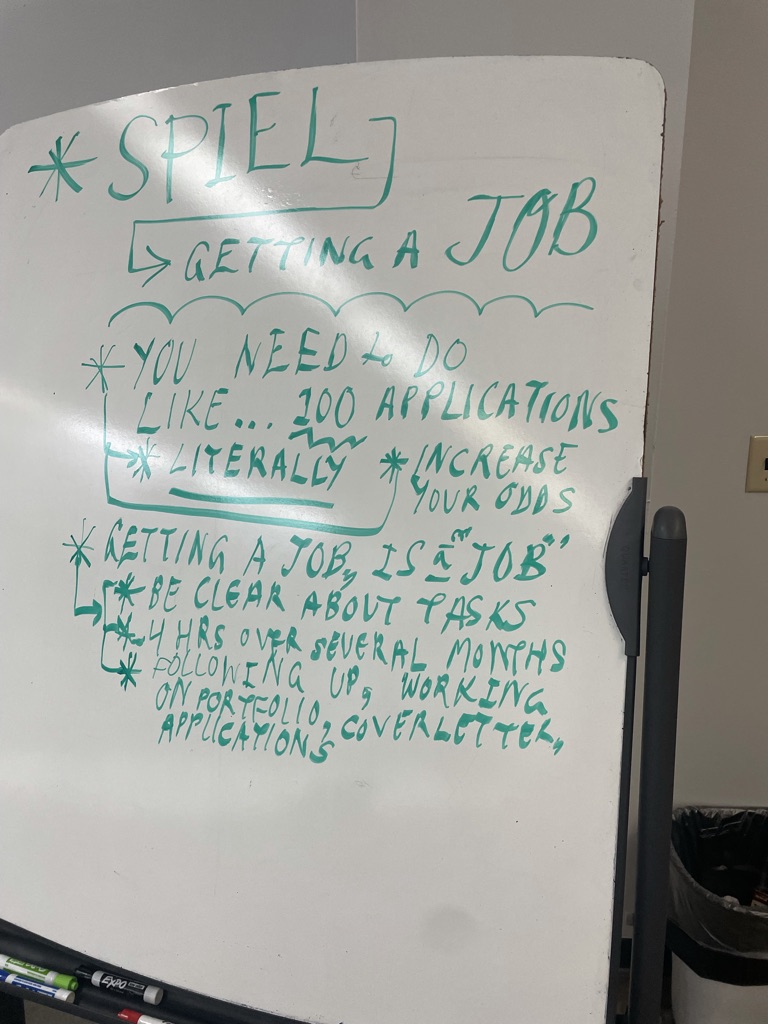 * SPIEL
GETTING A JOB
* YOU NEED to DO
LIKE... 100 APPLICATIONS
* LITERALLY
* INCREASE
YOUR ODDS
* GETTING A JOB, IS a "JOB"
* BE CLEAR ABOUT TASKS
* 4 HRS OVER SEVERAL MONTHS
* FOLLOWING UP, WORKING
ON PORTFOLIO, COVERLETTER,
APPLICATIONS
EXPO